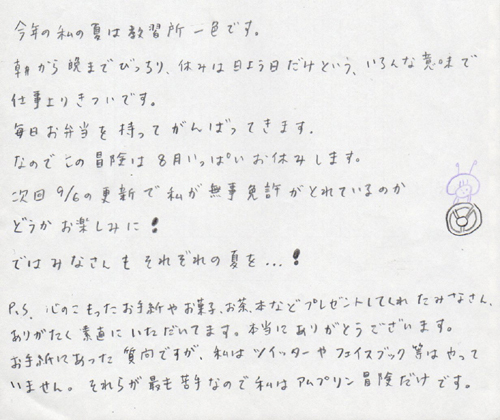 今年の私の夏は教習所一色です。
朝から晩までびっちり、休みは日よう日だけという、いろんな意味で
仕事よりきついです。
毎日お弁当を持ってがんばってきます。
なのでこの冒険は8月いっぱいお休みします。
次回9/6の更新で私が無事免許がとれているのか
どうかお楽しみに!
ではみなさんもそれぞれの夏を...!
P.S. 心のこもったお手紙やお菓子、お茶、本などプレゼントしてくれたみなさん、
ありがたく素直にいただいてます。本当にありがとうございます。
お手紙にあった質問ですが、私はツイッターやフェイスブック等はやって
いません。それらが最も苦手なので私はアムプリン冒険だけです。